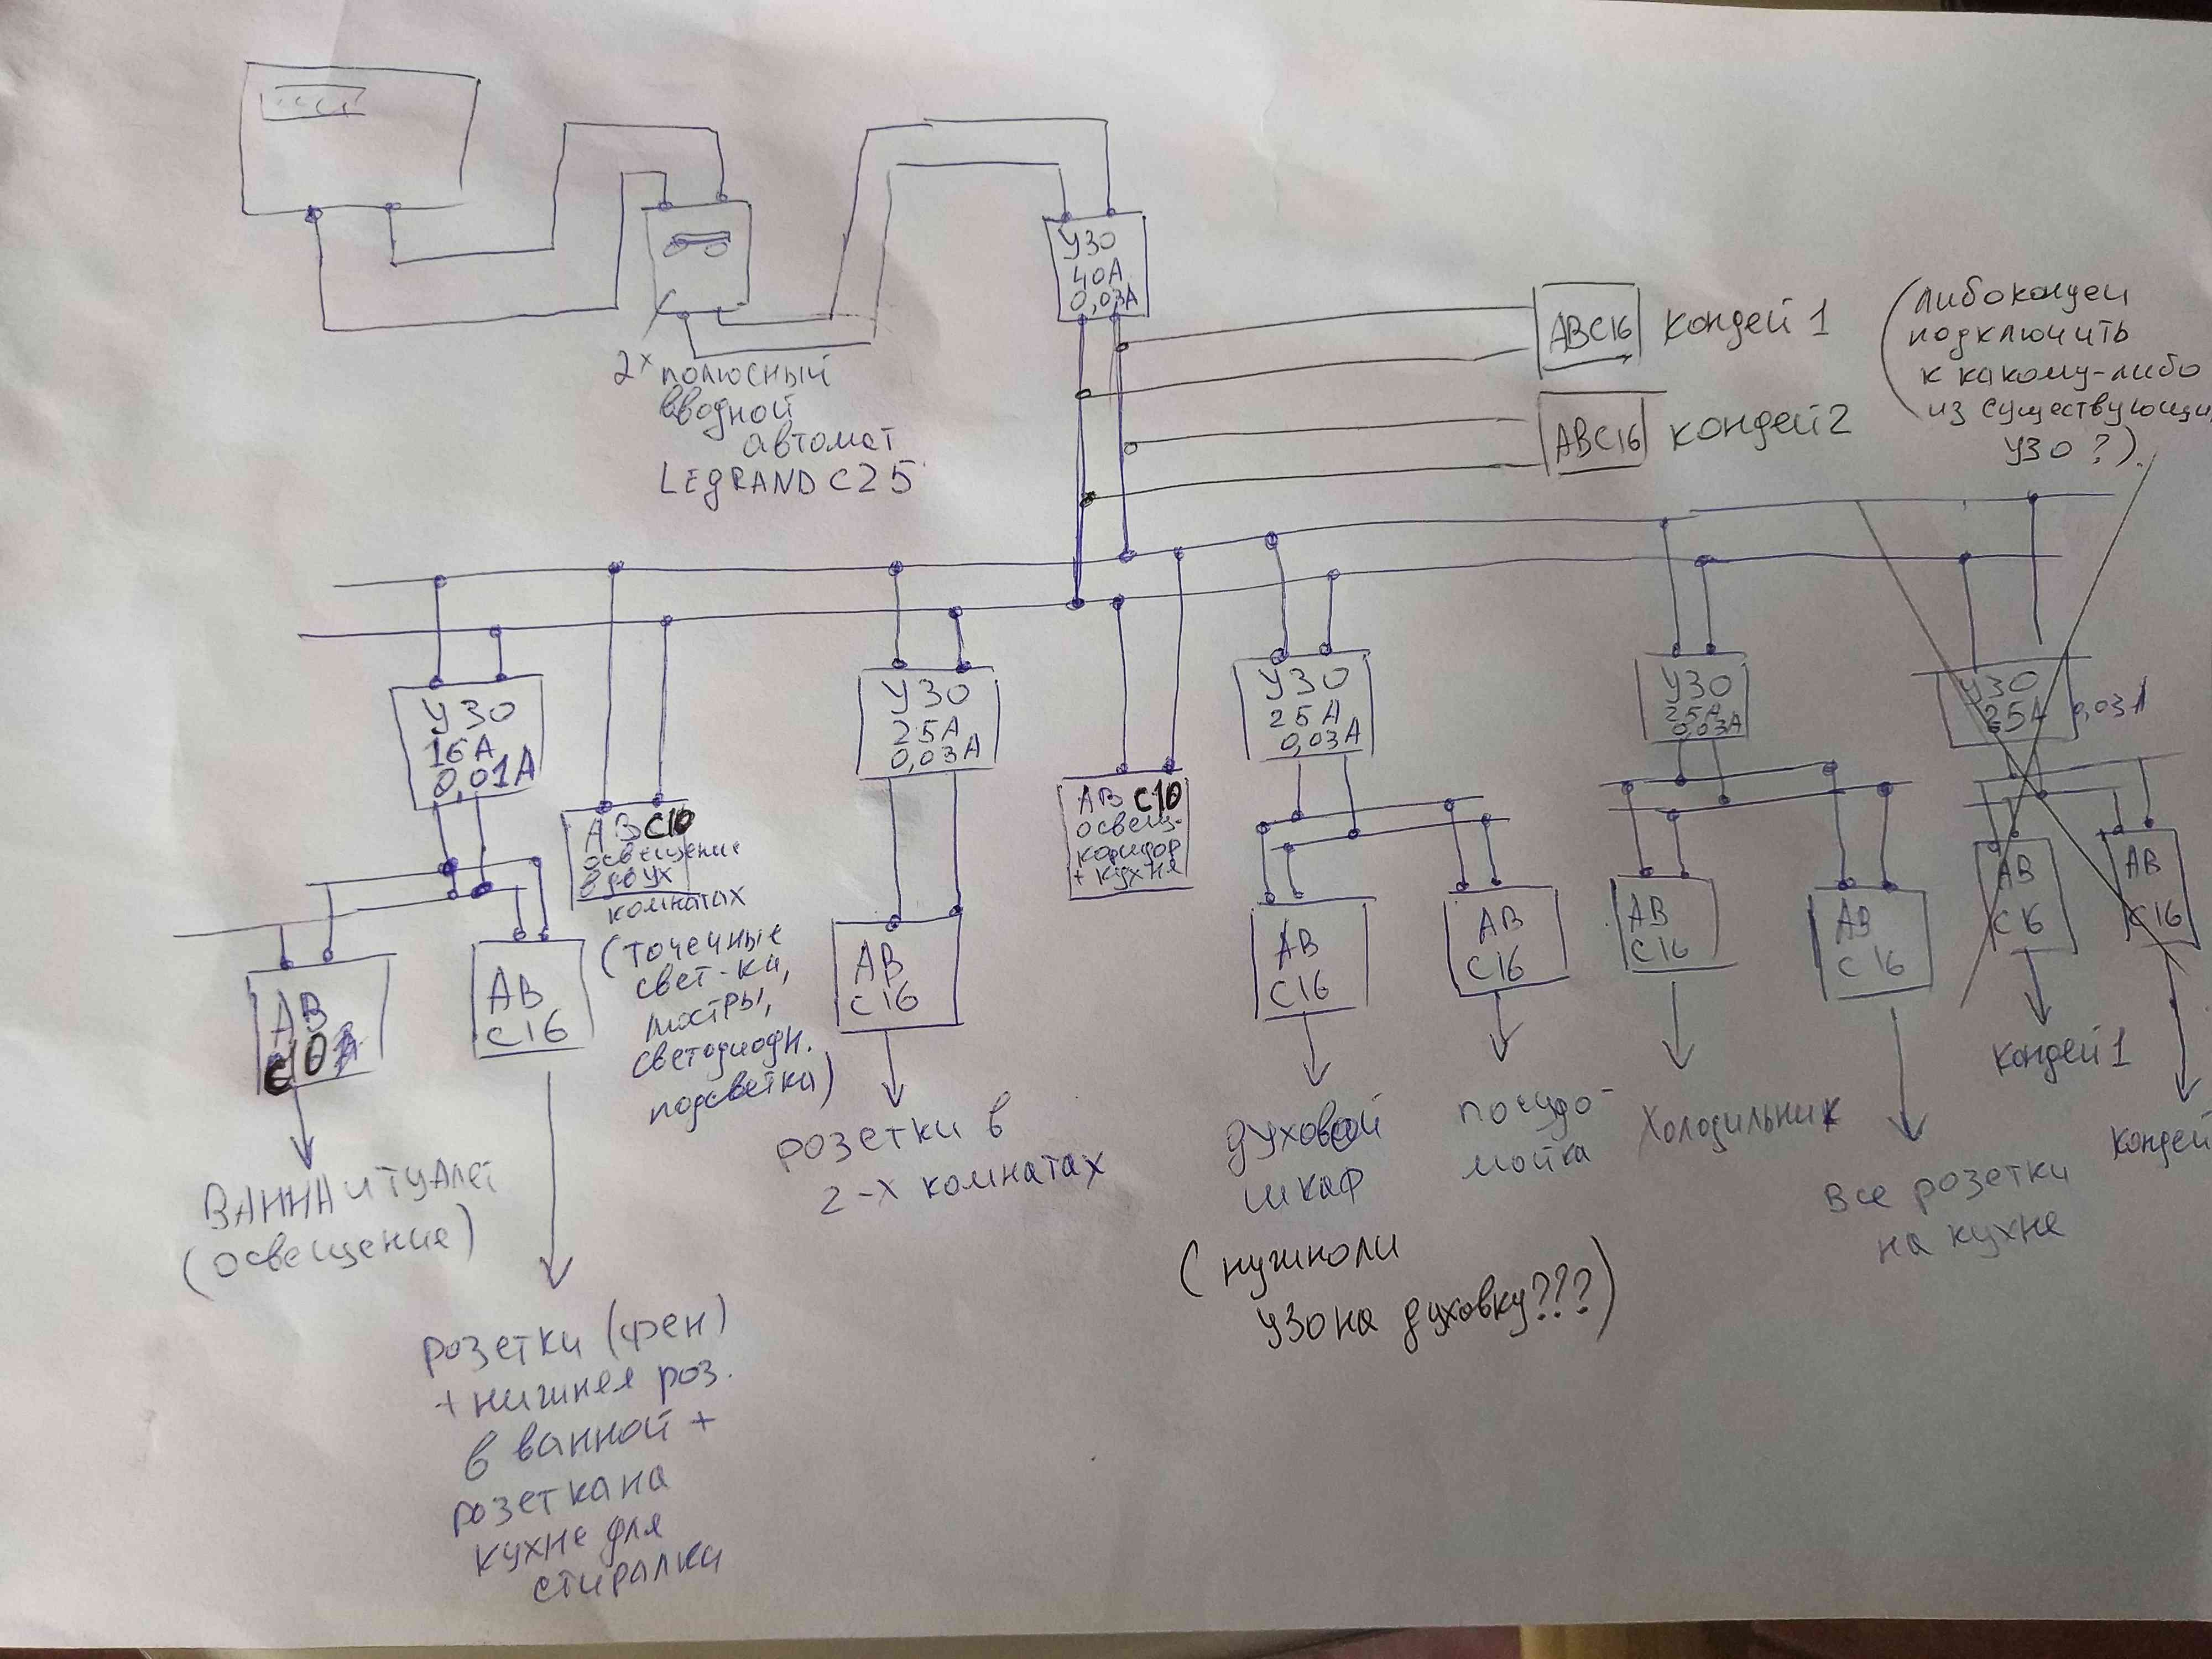 УЗО
40А
0,03А
2х полюсный
вводной
автомат
LEGRAND C25
АВС16
кондей 1
АВС16
кондей 2
(либо кондей
подключить
к какому-либо
из существующи
УЗО?)
УЗО
16А
0,01А
АВ С10
освещение
в двух
комнатах
(точечные
свет-ки,
люстры,
светодиодн.
подсветка)
УЗО
25А
0,03А
АВ С10
освещ-
коридор
+ кухня
УЗО
25А
0,03А
УЗО
25А
0,03А
УЗО
25А
0,03А
АВ
С10А
АВ
С16
АВ
С16
АВ
С16
АВ
С16
АВ
С16
АВ
С16
АВ
С16
АВ
С16
ВАННА и ТУАЛЕТ
(освещение)
розетки (фен)
+ нижняя роз.
в ванной +
розетка на
кухне для
стиралки
розетки в
2-х комнатах
духовой
шкаф
(нужно ли
УЗО на духовку???)
посудо-
мойка
Холодильник
Все розетки
на кухне
кондей 1
кондей